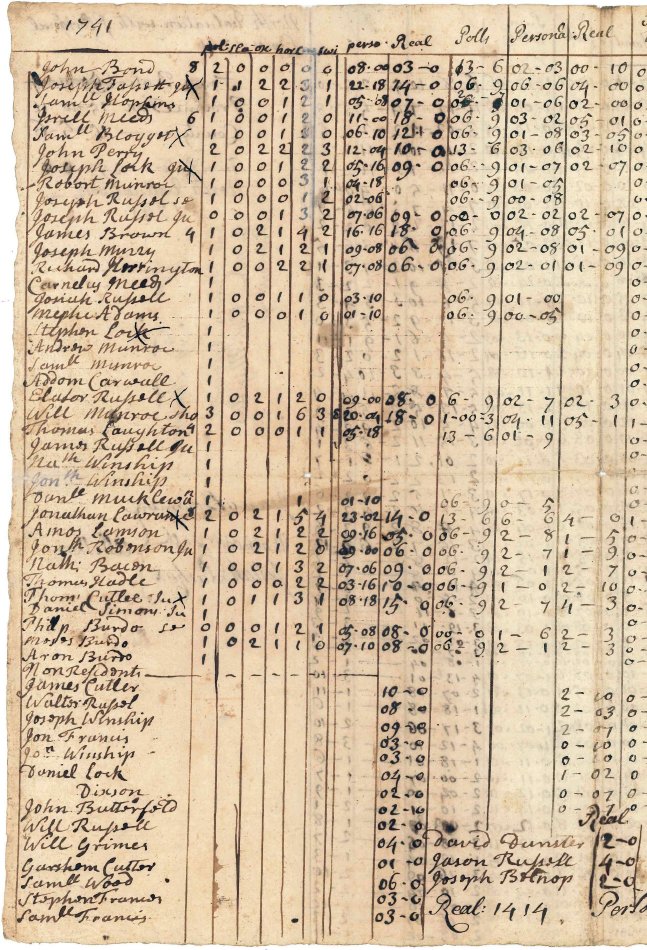 1741
pol · sla · ox · hors · swi perso · Real Polls Persona Real
John Bond 8 2 0 0 0 0 0 08-00 03-0 13-6 02-03 00-10 0
Joseph Tassett Ju X 1 1 2 2 3 1 22-18 14-0 06-9 06-06 04-00
Samll Hopkins 1 0 0 1 2 1 05-08 07-0 9 01-06 02-00
Israll Meed 6 1 0 0 1 2 0 11-00 18-0 06-9 03-02 05-01
Samll Blogget X 1 0 0 1 3 0 06-10 12-0 06-9 01-08 03-05
John Perry 2 0 2 2 2 3 12-04 10-0 13-6 03-06 02-10
Joseph Lock Ju X 1 0 0 1 2 2 05-16 09-0 06-9 01-07 02-07
Robert Munroe 1 0 0 0 3 1 04-18 06-9 01-05
Joseph Russel se 1 0 0 0 1 2 02-06 06-9 00-08
Joseph Russel Ju 0 0 0 1 3 2 07-06 09-0 00-0 02-02 02-07
James Brown 4 1 0 2 1 4 2 16-16 18-0 06-9 04-08 05-01
Joseph Muzzy 1 0 2 1 2 1 09-08 06-0 06-9 02-08 01-09
Richard Herrington 1 0 0 2 2 1 07-08 06-0 06-9 02-01 01-09
Carnelus Meed 1
Josiah Russell 1 0 0 1 1 0 03-10 06-9 01-00
Meph Adams 1 0 0 0 1 0 01-10 06-9 00-05
Stephen Lock X 1
Andrew Munroe 1
Samll Munroe 1
Addom Carwall 1
Elator Russell X 1 0 2 1 2 0 09-00 08-0 6-9 02-7 02-3
Will Munroe 3 0 0 1 6 3 20-04 18-0 1-00-3 04-11 05-1
Thomas Laughton 2 0 0 0 1 1 05-18 13-6 01-9
James Russell Ju 1
Nath Winship 1
Jonth Winship 1
Danll 1 1 01-10 06-9 0-5
Jonathan Lawrance X 2 0 2 1 5 4 23-02 14-0 13-6 6-6 4-0
Amos Lamson 1 0 2 1 2 2 09-16 05-0 06-9 2-8 1-5
Jonth Robenson Ju 1 0 2 1 2 0 09-00 06-0 06-9 2-7 1-9
Nathl Bacon 1 0 0 1 3 2 07-06 09-0 06-9 2-1 2-7
Thomas Hadle 1 0 0 0 2 2 03-16 10-0 06-9 1-0 2-10
Thom Cutler Ju X 1 0 1 1 3 1 08-18 15-0 06-9 2-7 4-3
Daniel Simons Ju 1
Philip Burdo se 0 0 0 0 1 2 1 05-08 08-0 00-0 1-6 2-3
Moses Burdo 1 0 2 1 1 0 07-10 08-0 06-9 2-1 2-3
Aron Burdo 1
Non Residents
James Cutler 10-0 2-10
Walter Russel 08-0 2-03
Joseph Winship 09-0 2-07
Jon Francis 03-0 0-10
Jon Winship 03-0 0-10
Daniel Lock 04-0 1-02
Dixson 02-0 0-07
John Butterfeld 02-10 0-7
Will Russell 02-0 Real
Will Grimes 04-0 David Dunster 2-0
Garshem Cutter 01-0 Jason Russell 4-0
Samll Wood 06-0 Joseph Belnop 2-0
Stephen Frances 03-0
Samll Francis 03-0 Real: 1414 Perso